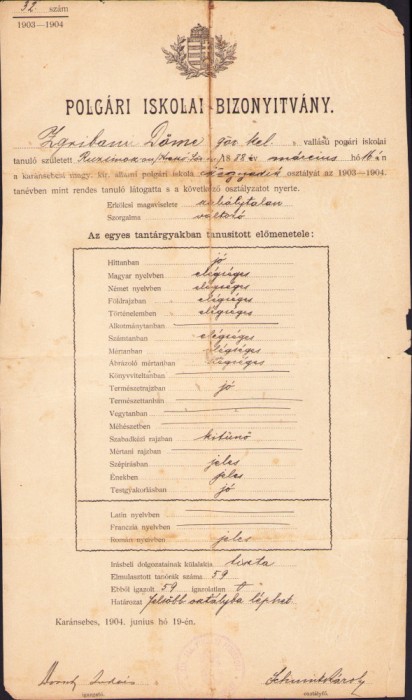 92. szám
1903—1904
POLGÁRI ISKOLAI BIZONYITVÁNY.
Zgribam Döme gör. kel. vallásu pogári iskolai
tanuló született 1888 év március hó 16 án
a karánsebesi magy. kir. állami polgári iskola negyedik osztályát az 1903—1904.
tanévben mint rendes tanuló látogatta s a következő osztályzatot nyerte.
Erkölcsi magaviselete szabálytalan
Szorgalma változó
Az egyes tantárgyakban tanusitott előmenetele:
Hittanban jó
Magyar nyelvben elégséges
Német nyelvben elégséges
Földrajzban elégséges
Történelemben elégséges
Alkotmánytanban
Számtanban elégséges
Mértanban elégséges
Ábrázoló mértanban elégséges
Könyvviteltanban
Természetrajzban jó
Természettanban
Vegytanban
Méhészetben
Szabadkézi rajzban kitünő
Mértani rajzban
Szépirásban jeles
Énekben jeles
Testgyakorlásban jó
Latin nyelvben
Franczia nyelvben
Román nyelvben jeles
Irásbeli dolgozatainak külalakja tiszta
Elmulasztott tanórák száma 59
Ebből igazolt 59 igazolatlan
Határozat felsőbb osztályba léphet.
Karánsebes, 1904. junius hó 19-én.
Schmidt Károly
igazgató.
osztályfő.